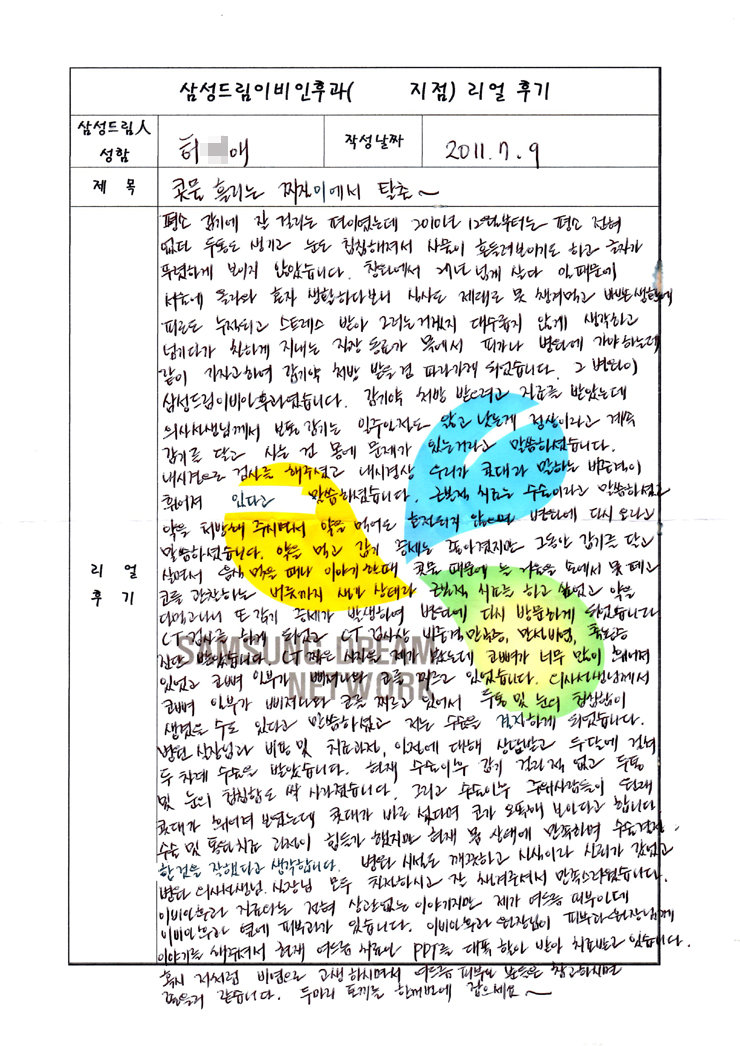 삼성드림이비인후과( 지점) 리얼 후기
삼성드림人
성함
허 애
작성날짜
2011. 7. 9
제 목
콧물 흘리는 찌질이에서 탈출~
평소 감기에 잘 걸리는 편이였는데 2010년 12월부터는 평소 전혀
없던 두통도 생기고 눈도 침침해져서 사물이 흔들려보이기도 하고 글자가
뚜렷하게 보이지 않았습니다. 창원에서 24년 넘게 살다 일 때문에
서울에 올라와 혼자 생활하다보니 식사도 제대로 못 챙겨먹고 바쁜생활에
피로도 누적되고 스트레스 받아 그러는거겠지 대수롭지 않게 생각하고
넘기다가 친하게 지내는 직장 동료가 목에서 피가나 병원에 가야하는데
같이 가자고하여 감기약 처방 받을 겸 따라가게 되었습니다. 그 병원이
삼성드림이비인후과였습니다. 감기약 처방 받으려고 진료를 받았는데
의사선생님께서 보통 감기는 일주일정도 앓고 낫는게 정상이라고 계속
감기를 달고 사는 건 몸에 문제가 있는거라고 말씀하셨습니다.
내시경으로 검사를 해주셨고 내시경상 우리가 콧대라 말하는 비중격이
휘어져 있다고 말씀하셨습니다. 근본적 치료는 수술이라고 말씀하셨고
약을 처방해 주시면서 약을 먹어도 호전되지 않으면 병원에 다시 오라고
말씀하셨습니다. 약을 먹고 감기 증세는 좋아졌지만 그동안 감기를 달고
살면서 음식 먹을 때나 이야기 할때 콧물 때문에 늘 휴지를 손에서 못 떼고
코를 관찰하는 버릇까지 생긴 상태라 근본적 치료를 하고 싶었고 약을
다먹고나니 또 감기 증세가 발생하여 병원에 다시 방문하게 되었습니다
CT 검사를 하게 되었고 CT 검사상 비중격만곡증, 만성비염, 축농증
진단 받았습니다. CT 찍은 사진을 제가 봤는데 코뼈가 너무 많이 휘어져
있었고 코뼈 일부가 삐져나와 코를 찌르고 있었습니다. 의사선생님께서
코뼈 일부가 삐져나와 코를 찌르고 있어서 두통 및 눈의 침침함이
생겼을 수도 있다고 말씀하셨고 저는 수술을 결정하게 되었습니다.
병원 실장님과 비용 및 치료과정, 일정에 대해 상담받고 두달에 걸쳐
두 차례 수술을 받았습니다. 현재 수술이후 감기 걸린적 없고 두통
및 눈의 침침함도 싹 사라졌습니다. 그리고 수술이후 주위사람들이 원래
콧대가 휘어져 보였는데 콧대가 바로 섰다며 코가 오똑해 보인다고 합니다.
수술 및 통원치료 과정이 힘들기 했지만 현재 몸 상태에 만족하며 수술결정
한것을 잘했다고 생각합니다. 병원 시설도 깨끗하고 최신식이라 신뢰가 갔었고
병원 의사선생님, 실장님 모두 친절하시고 잘 챙겨주셔서 만족스러웠습니다.
이비인후과 진료와는 전혀 상관없는 이야기지만 제가 여드름 피부인데
이비인후과 옆에 피부과가 있습니다. 이비인후과 원장님이 피부과 원장님께
이야기를 해주셔서 현재 여드름 치료인 PDT를 대폭 할인 받아 치료받고 있습니다.
혹시 저처럼 비염으로 고생하시면서 여드름 피부인 분들은 참고하시면
좋을거 같습니다. 두마리 토끼를 한꺼번에 잡으세요~
리 얼
후 기
SAMSUNG DREAM
NETWORK